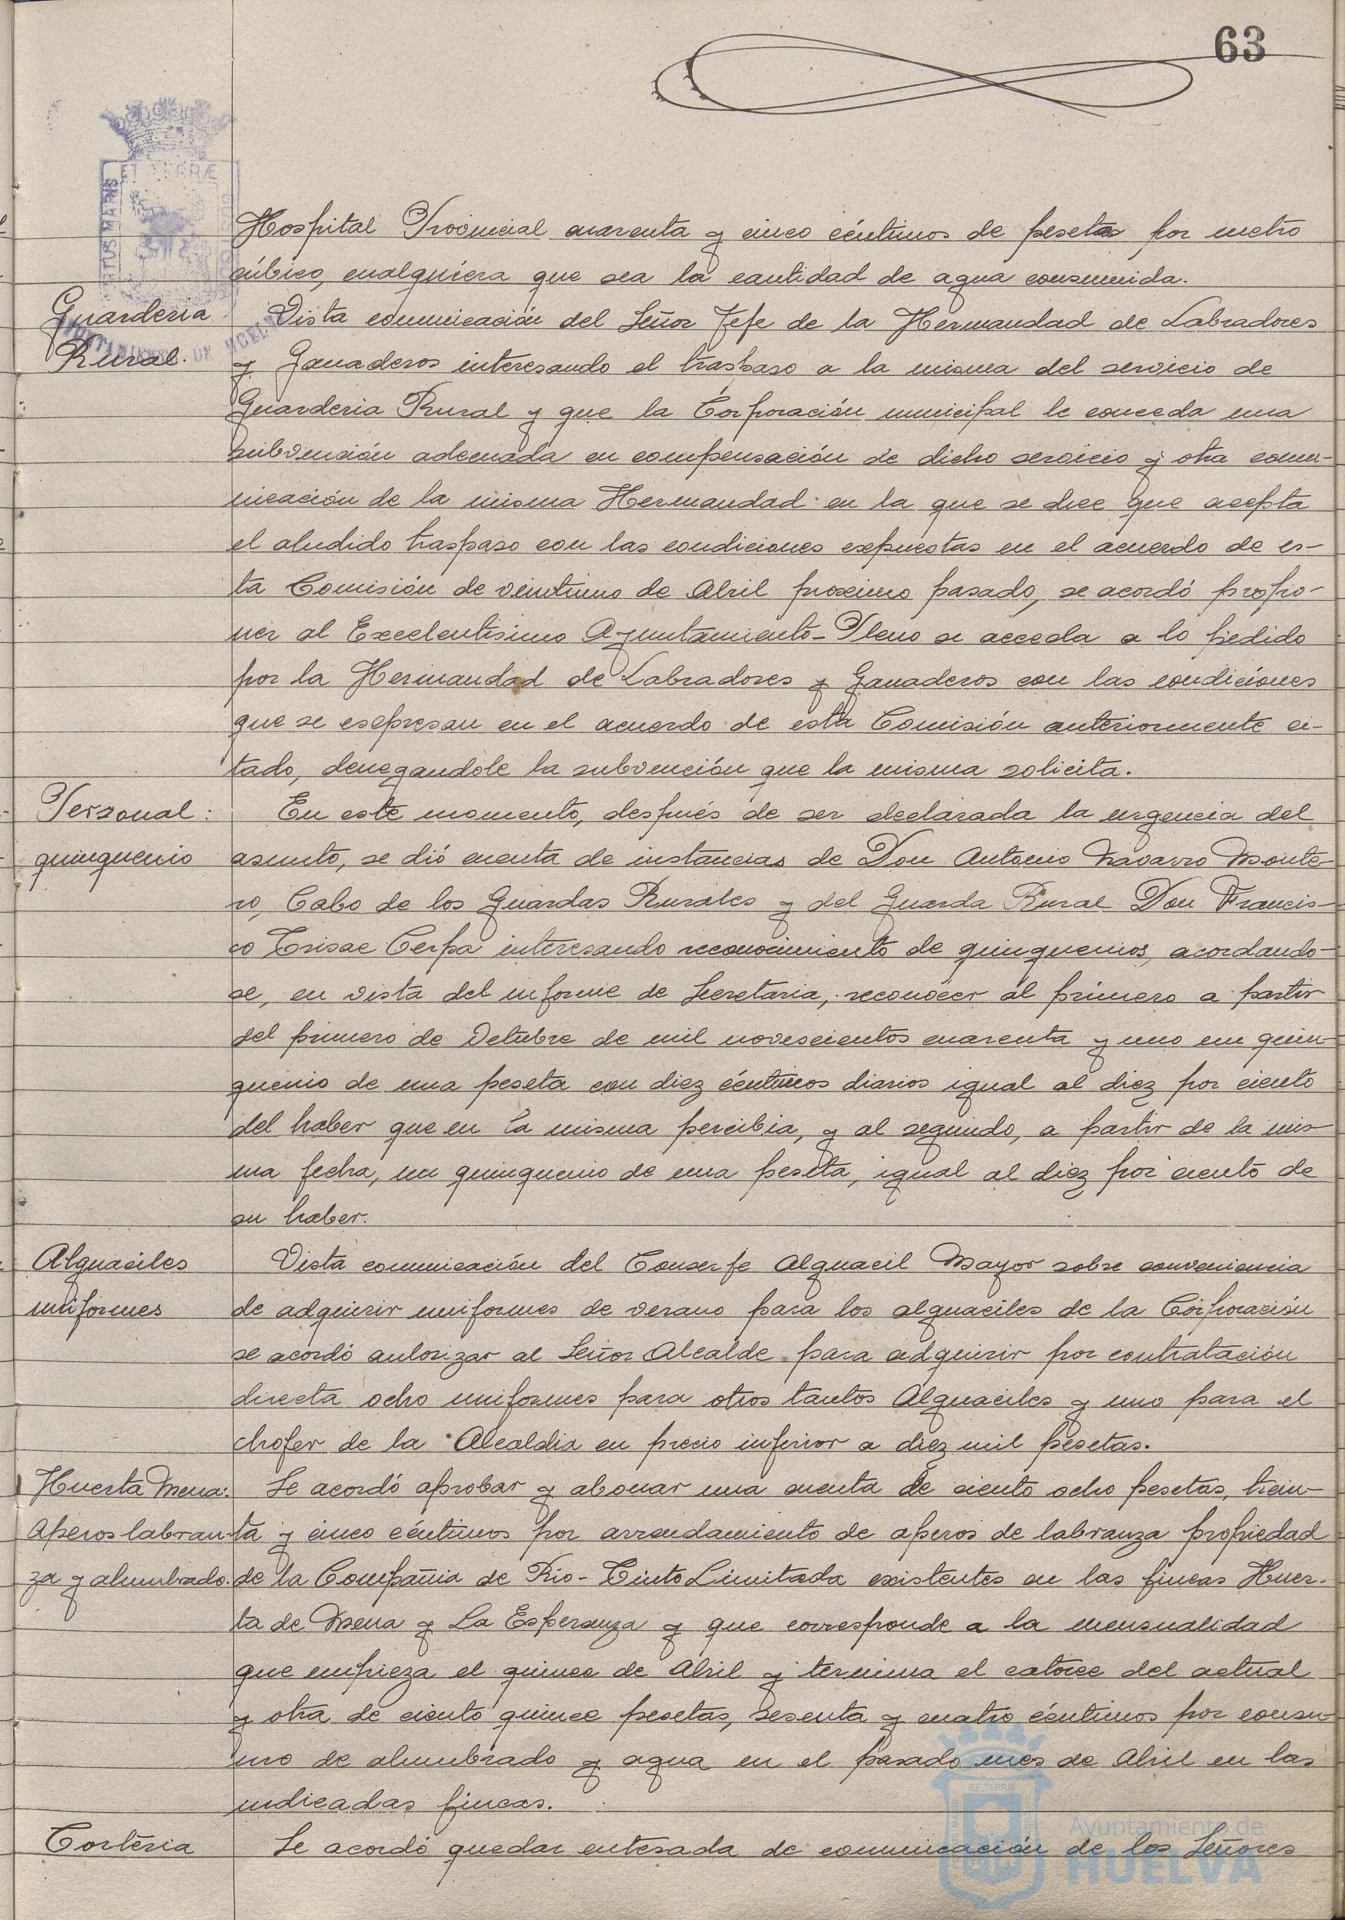 63
Hospital Provincial cuarenta y cinco céntimos de pesetas por metro
cúbico, cualquiera que sea la cantidad de agua consumida.
Guarderia
Rural.
Vista comunicación del Señor Jefe de la Hermandad de Labradores
y Ganaderos interesando el traspaso a la misma del servicio de
Guarderia Rural y que la Corporación municipal le conceda una
subvención adecuada en compensación de dicho servicio y otra comu-
nicación de la misma Hermandad en la que se dice que acepta
el aludido traspaso con las condiciones expuestas en el acuerdo de es-
ta Comisión de veintiuno de Abril proximo pasado, se acordó propo-
ner al Excelentisimo Ayuntamiento-Pleno se acceda a lo pedido
por la Hermandad de Labradores y Ganaderos con las condiciones
que se expresan en el acuerdo de esta Comisión anteriormente ci-
tado, denegandole la subvención que la misma solicita.
Personal:
quinquenio
En este momento, después de ser declarada la urgencia del
asunto, se dió cuenta de instancias de Don Antonio Navarro Monte-
ro, Cabo de los Guardas Rurales y del Guarda Rural Don Francis-
co Cerpa interesando reconocimiento de quinquenios, acordando-
se, en vista del informe de Secretaria, reconocer al primero a partir
del primero de Octubre de mil novescientos cuarenta y uno un quin-
quenio de una peseta con diez céntimos diarios igual al diez por ciento
del haber que en la misma percibia, y al segundo, a partir de la mis-
ma fecha, un quinquenio de una peseta, igual al diez por ciento de
su haber.
Alguaciles
uniformes
Vista comunicación del Conserje Alguacil Mayor sobre conveniencia
de adquirir uniformes de verano para los alguaciles de la Corporación
se acordó autorizar al Señor Alcalde para adquirir por contratación
directa ocho uniformes para otros tantos Alguaciles y uno para el
chofer de la Alcaldia en precio inferior a diez mil pesetas.
Huerta Mena:
Aperos labran-
za y alumbrado.
Se acordó aprobar y abonar una cuenta de ciento ocho pesetas, trein-
ta y cinco céntimos por arrendamiento de aperos de labranza propiedad
de la Compañia de Rio-Tinto Limitada existentes en las fincas Huer-
ta de Mena y La Esperanza y que corresponde a la mensualidad
que empieza el quince de Abril y termina el catorce del actual
y otra de ciento quince pesetas, sesenta y cuatro céntimos por consu-
mo de alumbrado y agua en el pasado mes de Abril en las
indicadas fincas.
Corteria
Se acordó quedar enterada de comunicación de los Señores
Ayuntamiento de
HUELVA